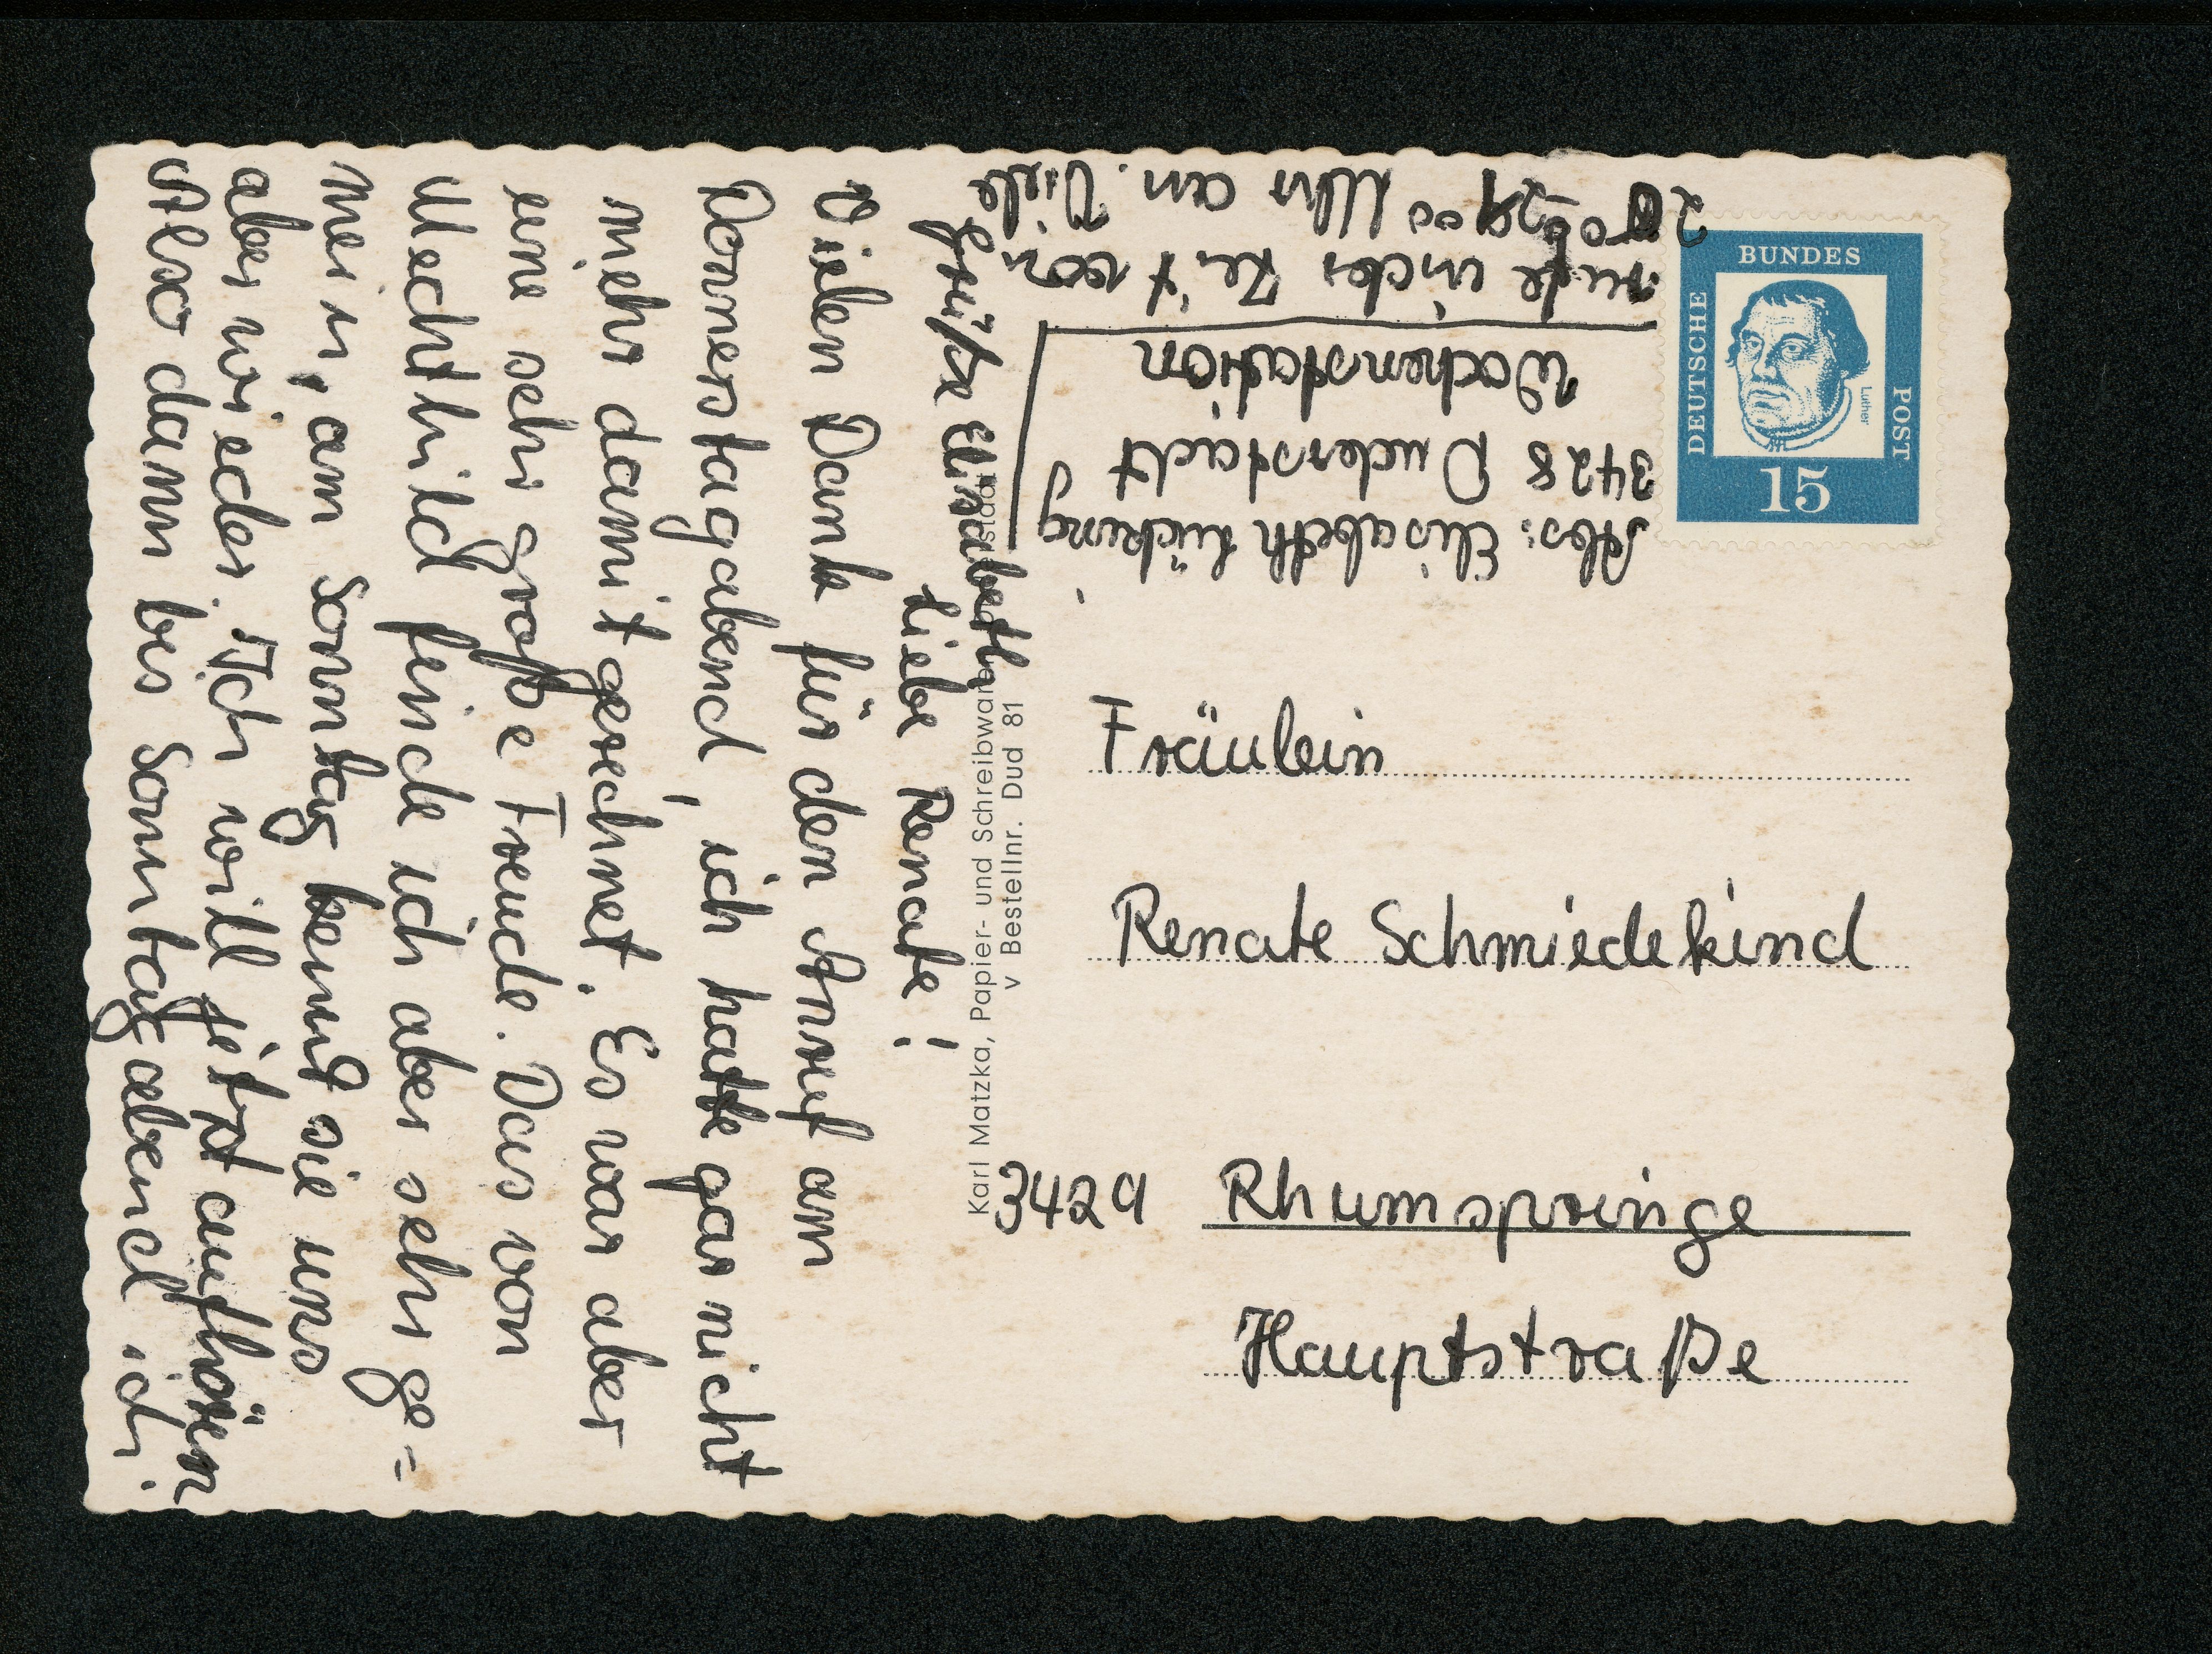 Liebe Renate!
Vielen Dank für den Anruf am
Donnerstagabend, ich hatte gar nicht
mehr damit gerechnet. Es war aber
eine sehr große Freude. Das von
Mechthild finde ich aber sehr ge=
mein, am Sonntag kennt sie uns
aber wieder. Ich will jetzt aufhören
Also dann bis Sonntagabend ich
rufe in der Zeit von
20⁰⁰-21⁰⁰ Uhr an. Viele
Grüße Elisabeth
Abs: Elisabeth Lücking
3428 Duderstadt
Wochenstation
Karl Matzka, Papier- und Schreibwaren
v Bestellnr. Dud 81
DEUTSCHE
BUNDES
POST
Luther
15
Fräulein
Renate Schmiedekind
3429 Rhumspringe
Hauptstraße